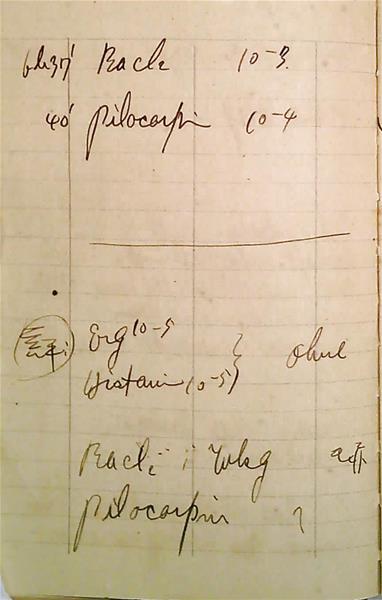 6h37' BaCl2 10-3
40' Pilocarpin 10-4
Erg 10-5 } ohne
Histamin (10-5)
BaCl2 : Wkg
Pilocarpin